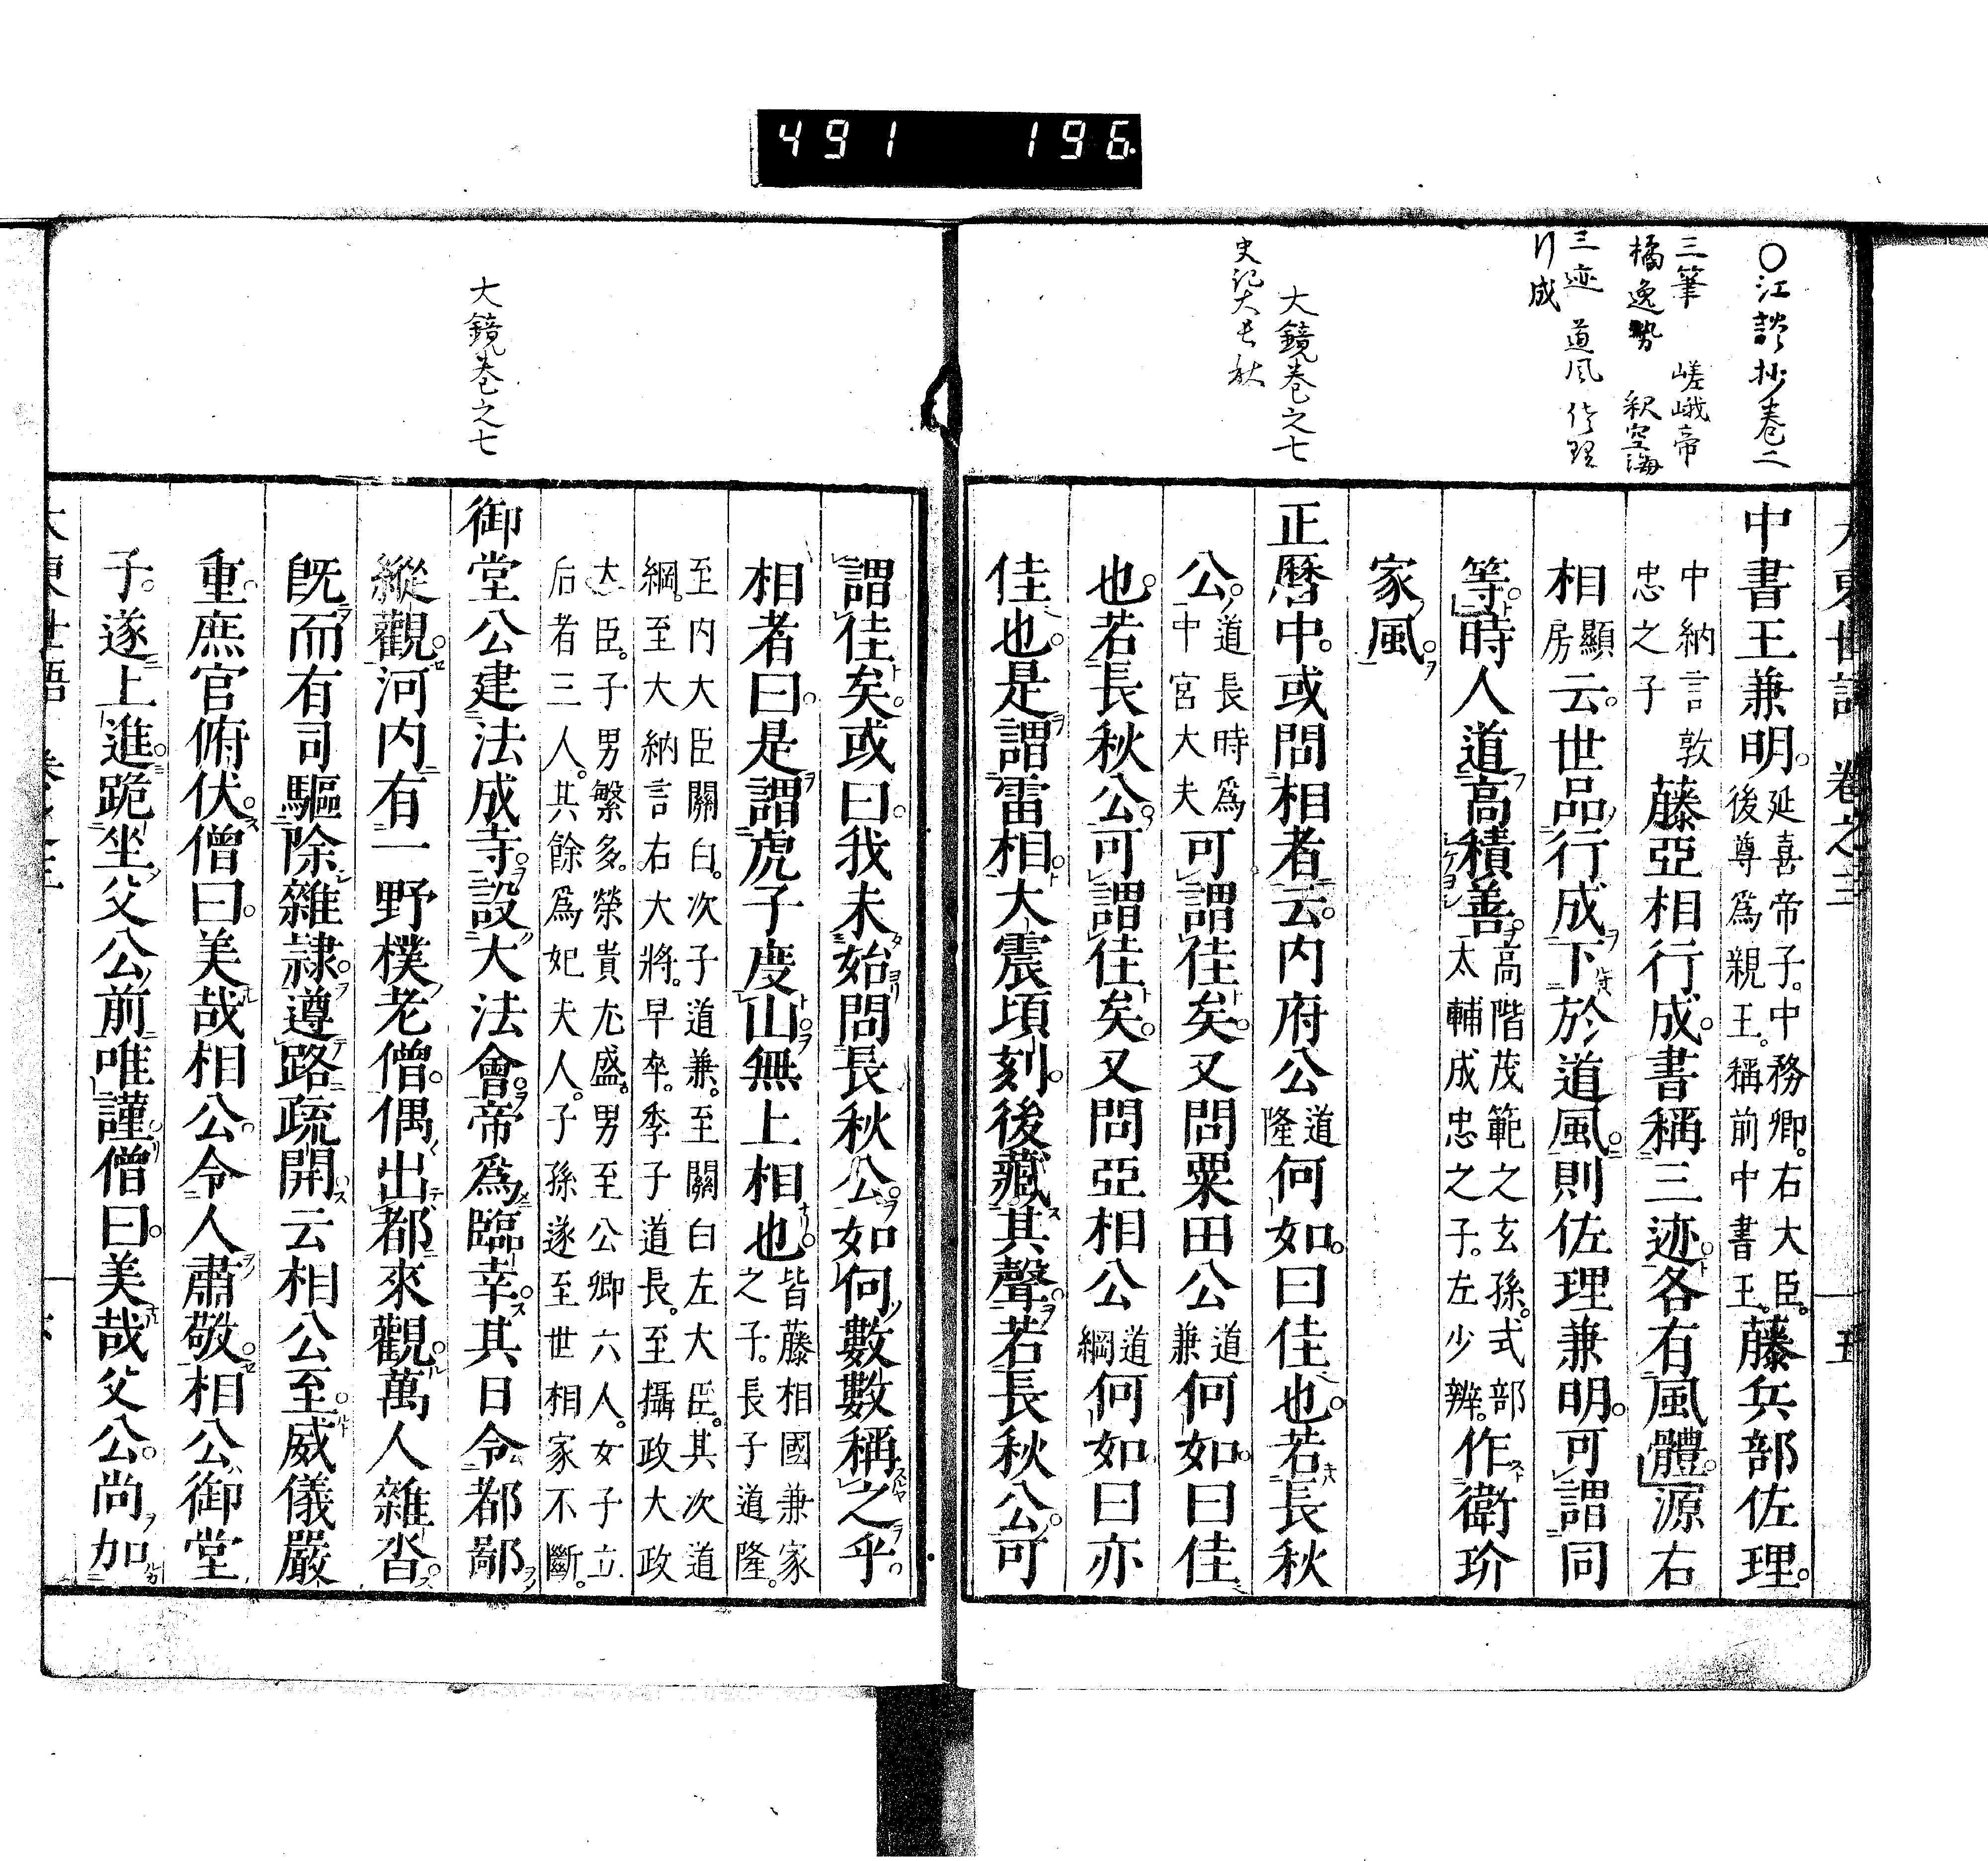 491 196
〇江談抄卷二
三筆 嵯峨帝
橘逸勢 釈空海
三迹 道風 佐理
行成
大鏡卷之七
史記大長秋
卷之三 五
中書王兼明延喜帝子中務卿右大臣後尊爲親王稱前中書王藤兵部佐理
中納言敦忠之子藤亞相行成書稱三迹各有風體源右
相顯房云世品行成下於道風則佐理兼明可謂同
等時人道高積善高階茂範之玄孫式部太輔成忠之子左少辨作衛玠
家風
正曆中或問相者云内府公道隆何如曰佳也若長秋
公道長時爲中宮大夫可謂佳矣又問粟田公道兼何如曰佳
也若長秋公可謂佳矣又問亞相公道綱何如曰亦
佳也是謂雷相大震頃刻後藏其聲若長秋公可
大鏡卷之七
謂佳矣或曰我未始問長秋公如何數數稱之乎
相者曰是謂虎子度山無上相也皆藤相國兼家之子長子道隆
至内大臣關白次子道兼至關白左大臣其次道
綱至大納言右大將早卒季子道長至攝政大政
大臣子男繁多榮貴尤盛男至公卿六人女子立
后者三人其餘爲妃夫人子孫遂至世相家不斷
御堂公建法成寺設大法會帝爲臨幸其日令都鄙
縱觀河内有一野樸老僧偶出都來觀萬人雜沓
既而有司驅除雜隷遵路疏開云相公至威儀嚴
重庶官俯伏僧曰美哉相公令人肅敬相公御堂
子遂上進跪坐父公前唯謹僧曰美哉父公尚加